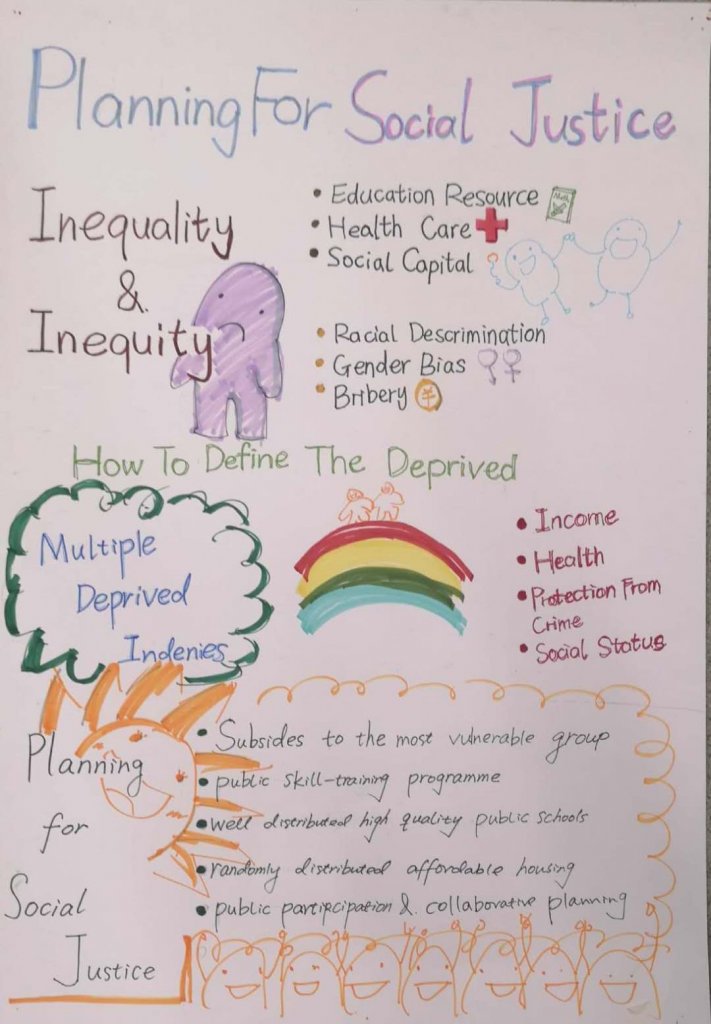 Planning For Social Justice
Inequality
&
Inequity
• Education Resource
Math
• Health Care
• Social Capital
• Racial Descrimination
• Gender Bias
• Bribery
¥
How To Define The Deprived
Multiple
Deprived
Indenies
• Income
• Health
• Protection From
Crime
• Social Status
Planning
for
Social
Justice
• Subsides to the most vulnerable group
• public skill-training programme
• well distributed high quality public schools
• randomly distributed affordable housing
• public participation & collaborative planning